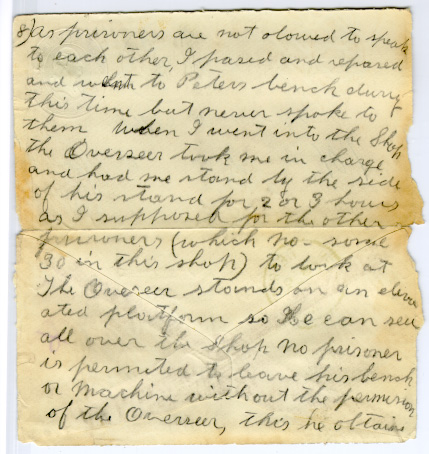 8) as prisoners are not olowed to speak
to each other, I pased and repased
and went to Peters bench durng
this time but never spoke to
them When I went into the Shop
the Overseer took me in charge
and had me stand by the side
of his stand for 2 or 3 hours
as I supposed for the other
prisoners (which no- some
30 in this shop) to look at
The Overseer stands on an elev
ated platform so he can see
all over the Shop no prisoner
is permited to leave his bench
or Machine without the permision
of the Overseer, this he obtains